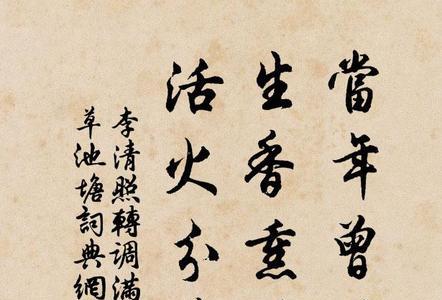 當年曾
生香熏
活火分
李清照轉調滿
草池塘詞典網